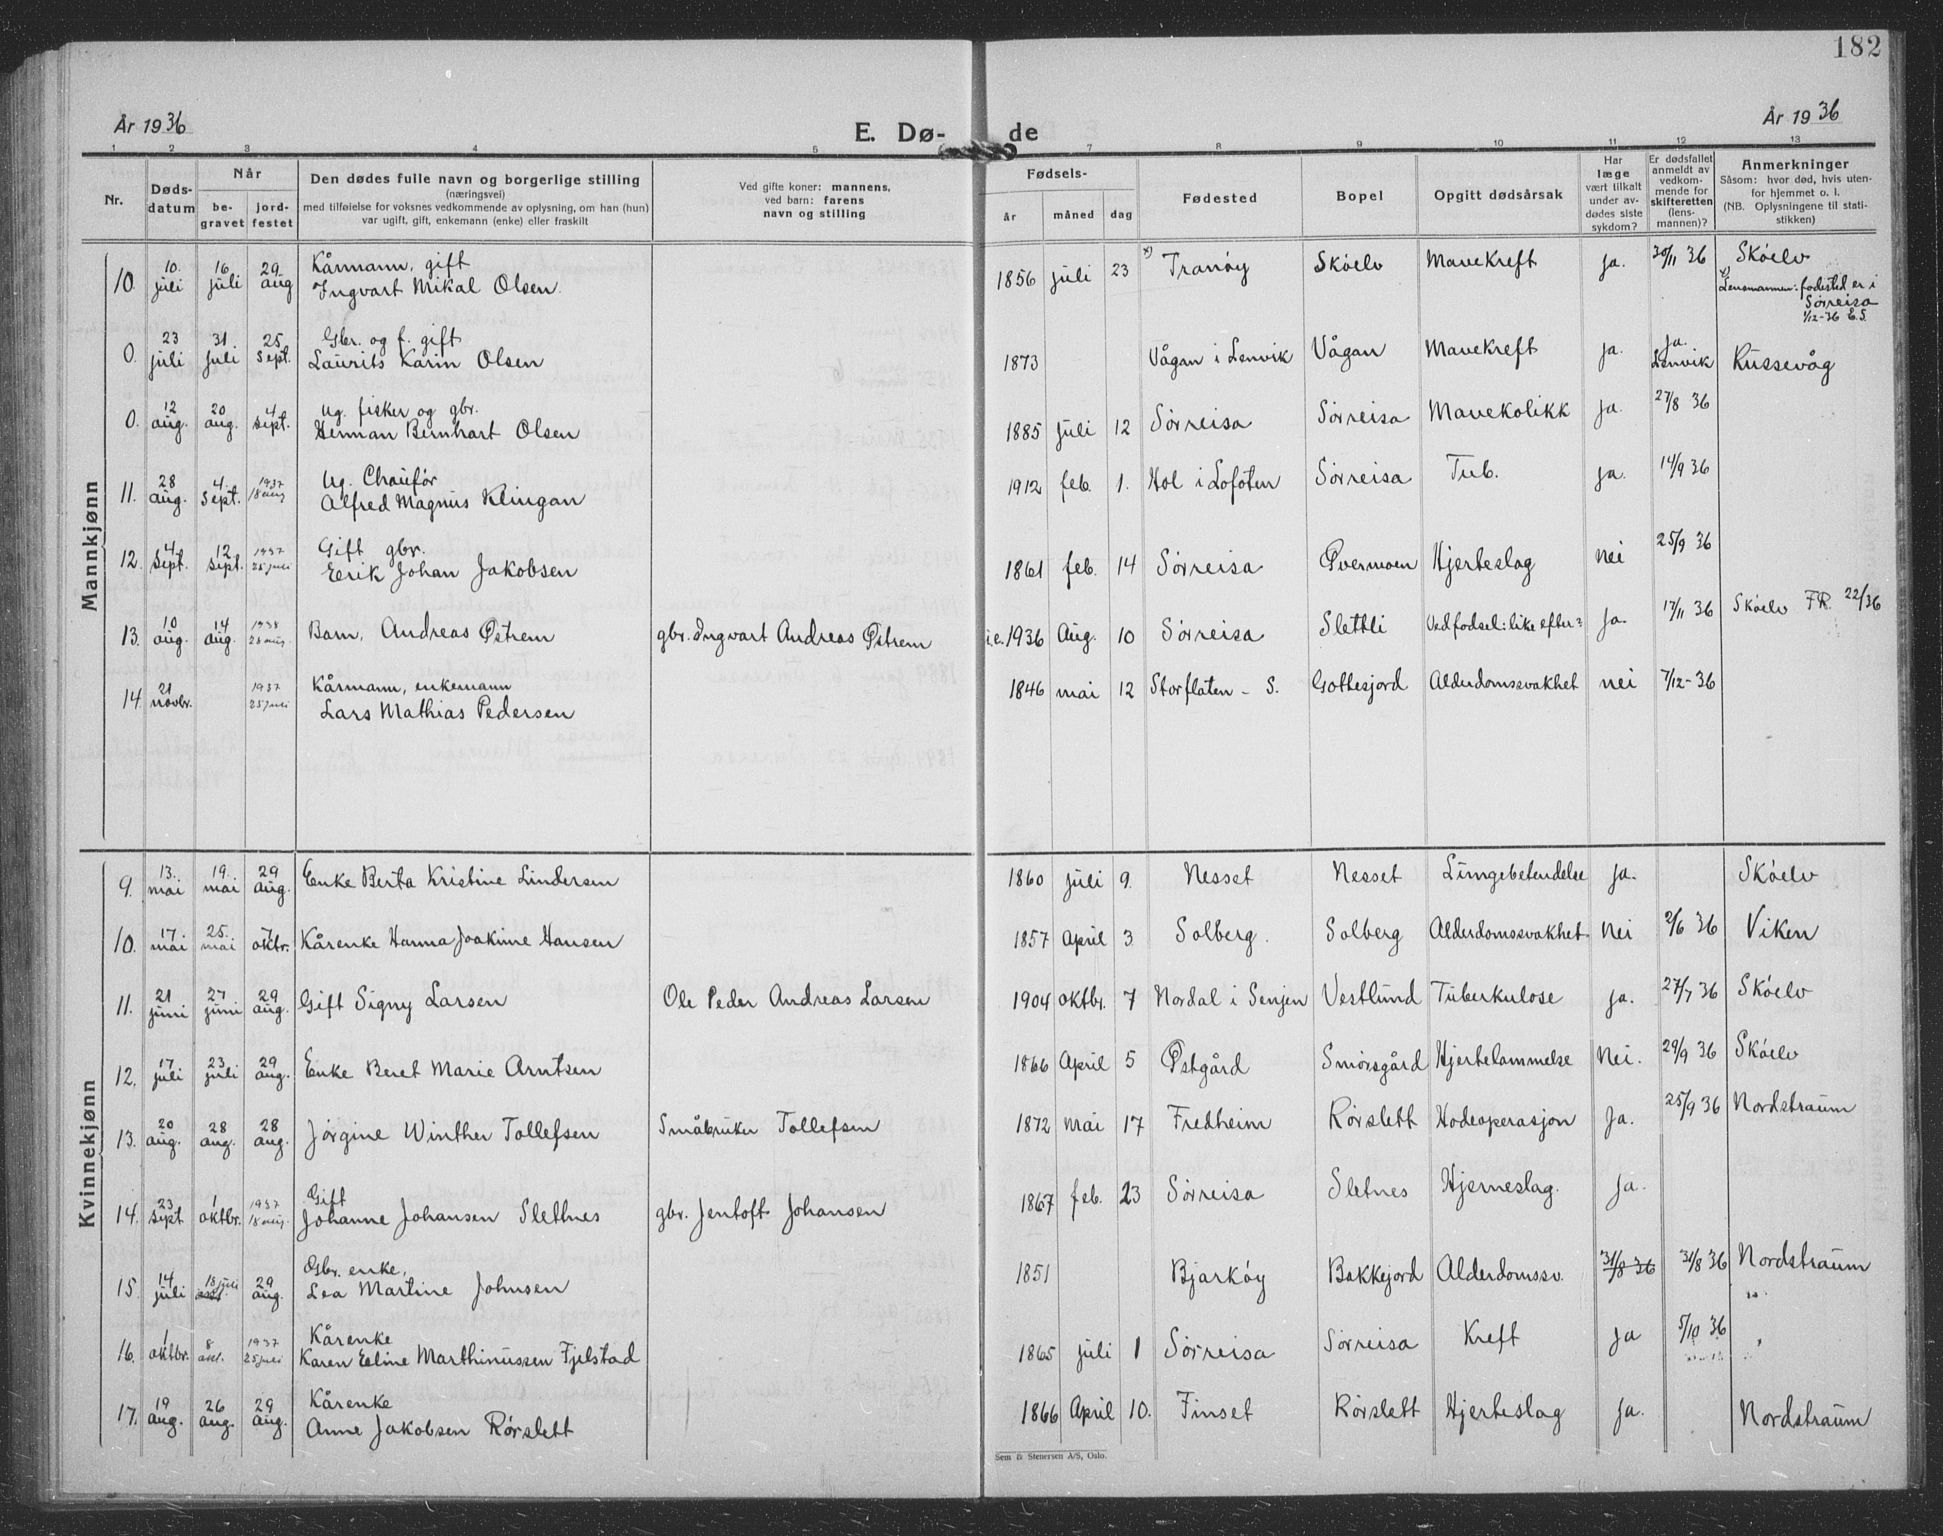 182
År 1936
E. Dø-
de
År 1936
1 2 3 4 5 7 8 9 10 11 12 13
Nr.
Døds-
datum
Når
be-
gravet
jord-
festet
Den dødes fulle navn og borgerlige stilling
(næringsvei)
med tilføielse for voksnes vedkommende av oplysning, om han (hun)
var ugift, gift, enkemann (enke) eller fraskilt
Ved gifte koner: mannens,
ved barn: farens
navn og stilling
Fødsels-
år måned dag
Fødested
Bopel
Opgitt dødsårsak
Har
læge
vært tilkalt
under av-
dødes siste
sykdom?
Er dødsfallet
anmeldt av
vedkom-
mende for
skifteretten
(lens-
mannen)?
Anmerkninger
Såsom: hvor død, hvis uten-
for hjemmet o. l.
(NB. Oplysningene til stati-
stikken)
Mannkjønn
10. 10. juli 16 juli 29 aug Kårmann, gift
Ingvart Mikal Olsen 1856 juli 23 x) Tranøy Skøelv Mavekreft ja. 30/11 36 Skøelv
x) Lensmannen: fødested er i
Sørreisa
1/12-36 E.S.
0. 23 juli 31 juli 25 sept. Gbr. og f. gift
Laurits Karin Olsen 1873 Vågan i Lenvik Vågan Mavekreft ja. ja. Lenvik Russevåg
0. 12 aug. 20 aug. 4 sept. Ug. fisker og gbr.
Herman Bernhart Olsen 1885 juli 12 Sørreisa Sørreisa Mavekolikk ja. 27/8 36
11. 28 aug. 4. sept. 1937 18 aug Ug. Chauför
Alfred Magnus Klingan 1912 feb. 1. Hol i Lofoten Sørreisa Tub. ja. 14/9 36
12. 4 sept. 12 sept. 1937 25 juli Gift gbr.
Erik Johan Jakobsen 1861 feb. 14 Sørreisa Øvermoen Hjerteslag nei 25/9 36
13. 10 aug. 14 aug. 1938 28 aug. Barn, Andreas Østrem gbr. Ingvart Andreas Østrem i.e. 1936 Aug. 10 Sørreisa Slettli Ved fødsel: like efter? ja. 17/11 36 Skøelv FR. 22/36
14. 21 novbr. 1937 25 juli Kårmann, enkemann
Lars Mathias Pedersen 1846 mai 12 Storflaten - S. Gottesjord Alderdomssvakhet nei 7/12-36
Kvinnekjønn
9. 13. mai 19. mai 29 aug. Enke Berta Kristine Lindersen 1860 juli 9. Nesset Nesset Lungebetendelse ja. Skøelv
10. 17. mai 25. mai 7 oktbr. Kårenke Hanna Joakime Hansen 1857 April 3 Solberg. Solberg Alderdomssvakhet Nei 2/6 36 Viken
11. 21 juni 27 juni 29 aug. Gift Signy Larsen Ole Peder Andreas Larsen 1904 oktbr. 7 Nordal i Senjen Vestlund Tuberkulose ja. 27/7 36 Skøelv
12. 17 juli 23 juli 29 aug. Enke Beret Marie Arntsen 1866 April 5 Østgård Smørsgård Hjertelammelse Nei. 29/9 36 Skøelv
13. 20 aug. 28 aug. 28 aug. Jørgine Winther Tollefsen Småbruker Tollefsen 1872 mai 17 Fredheim Rørslett Hodeoperasjon Ja. 25/9 36 Nordstraum
14. 23 sept 1 oktbr. 1937 18 aug. Gift
Johanne Johansen Slettnes gbr. Jentoft Johansen 1867 feb. 23 Sørreisa Sletnes Hjerneslag. Ja.
15. 14 juli 18 juli 29 aug. Gbr. enke,
Lea Martine Johnsen 1851 Bjarkøy Bakkejord Alderdomssv. 31/8 36 31/8 36 Nordstraum
16. 1 oktbr. 8 okt. 1937 25 juli Kårenke
Karen Eeline Marthinussen Fjelstad 1865 juli 1 Sørreisa Sørreisa Kreft Ja 5/10 36
17. 19 aug. 26 aug. 29 aug. Kårenke
Anne Jakobsen Rørslett 1866 April 10. Finset Rørslett Hjerteslag Ja. Nordstraum
Sem & Stenersen A/S, Oslo.